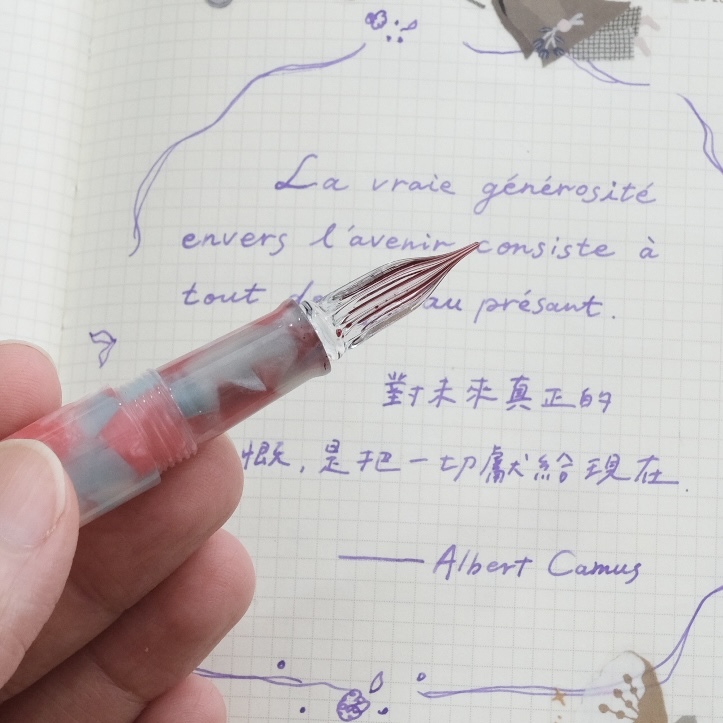 La vraie générosité
envers l'avenir consiste à
tout au présant.
對未來真正的
慨，是把一切獻給現在.
—— Albert Camus